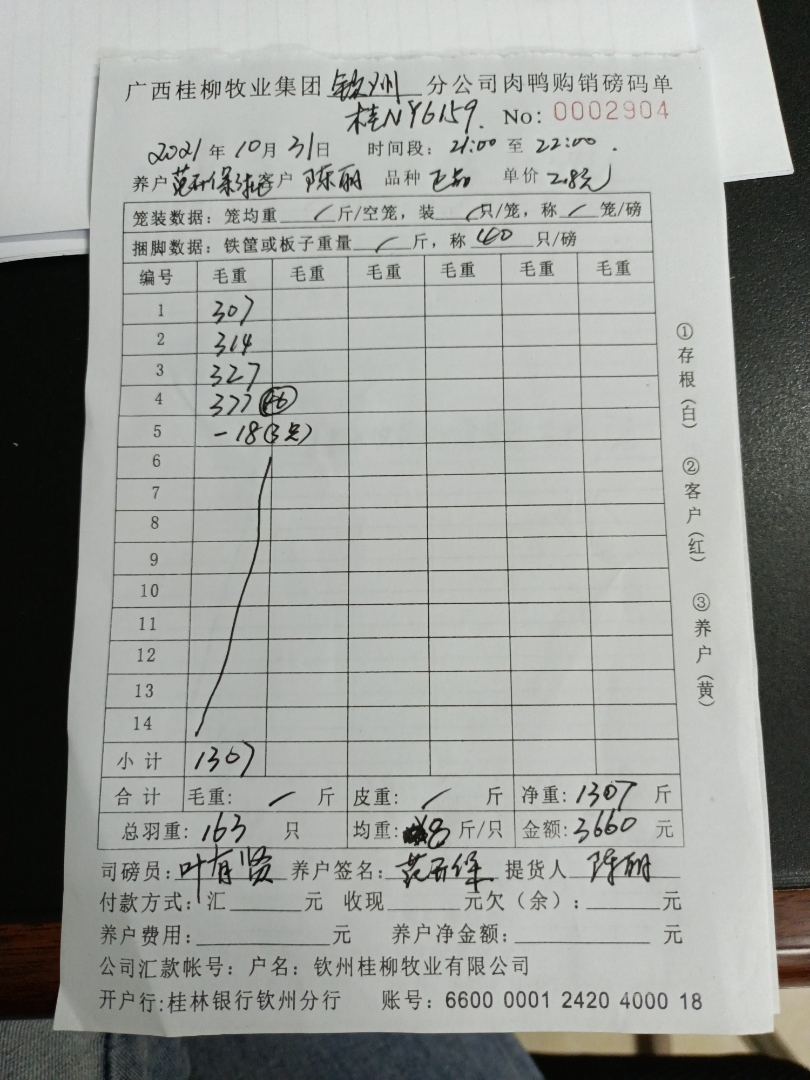 广西桂柳牧业集团 钦州 分公司肉鸭购销磅码单
桂NY6159. No: 0002904
2021年10月31日 时间段: 21:00 至 22:00.
养户 客户 陈丽 品种 正品 单价 2.8元
笼装数据: 笼均重 / 斤/空笼, 装 / 只/笼, 称 / 笼/磅
捆脚数据: 铁筐或板子重量 / 斤, 称 40 只/磅
编号 毛重 毛重 毛重 毛重 毛重
1 307
2 314
3 327
4 377 46
5 -18(3只)
6
7
8
9
10
11
12
13
14
小计 1307
合计 毛重: / 斤 皮重: / 斤 净重: 1307 斤
总羽重: 163 只 均重: 8 斤/只 金额: 3660 元
司磅员: 叶有贤 养户签名: 提货人 陈丽
付款方式: 汇 元 收现 元 欠(余): 元
养户费用: 元 养户净金额: 元
公司汇款帐号: 户名: 钦州桂柳牧业有限公司
开户行: 桂林银行钦州分行 账号: 6600 0001 2420 4000 18
①存根(白) ②客户(红) ③养户(黄)